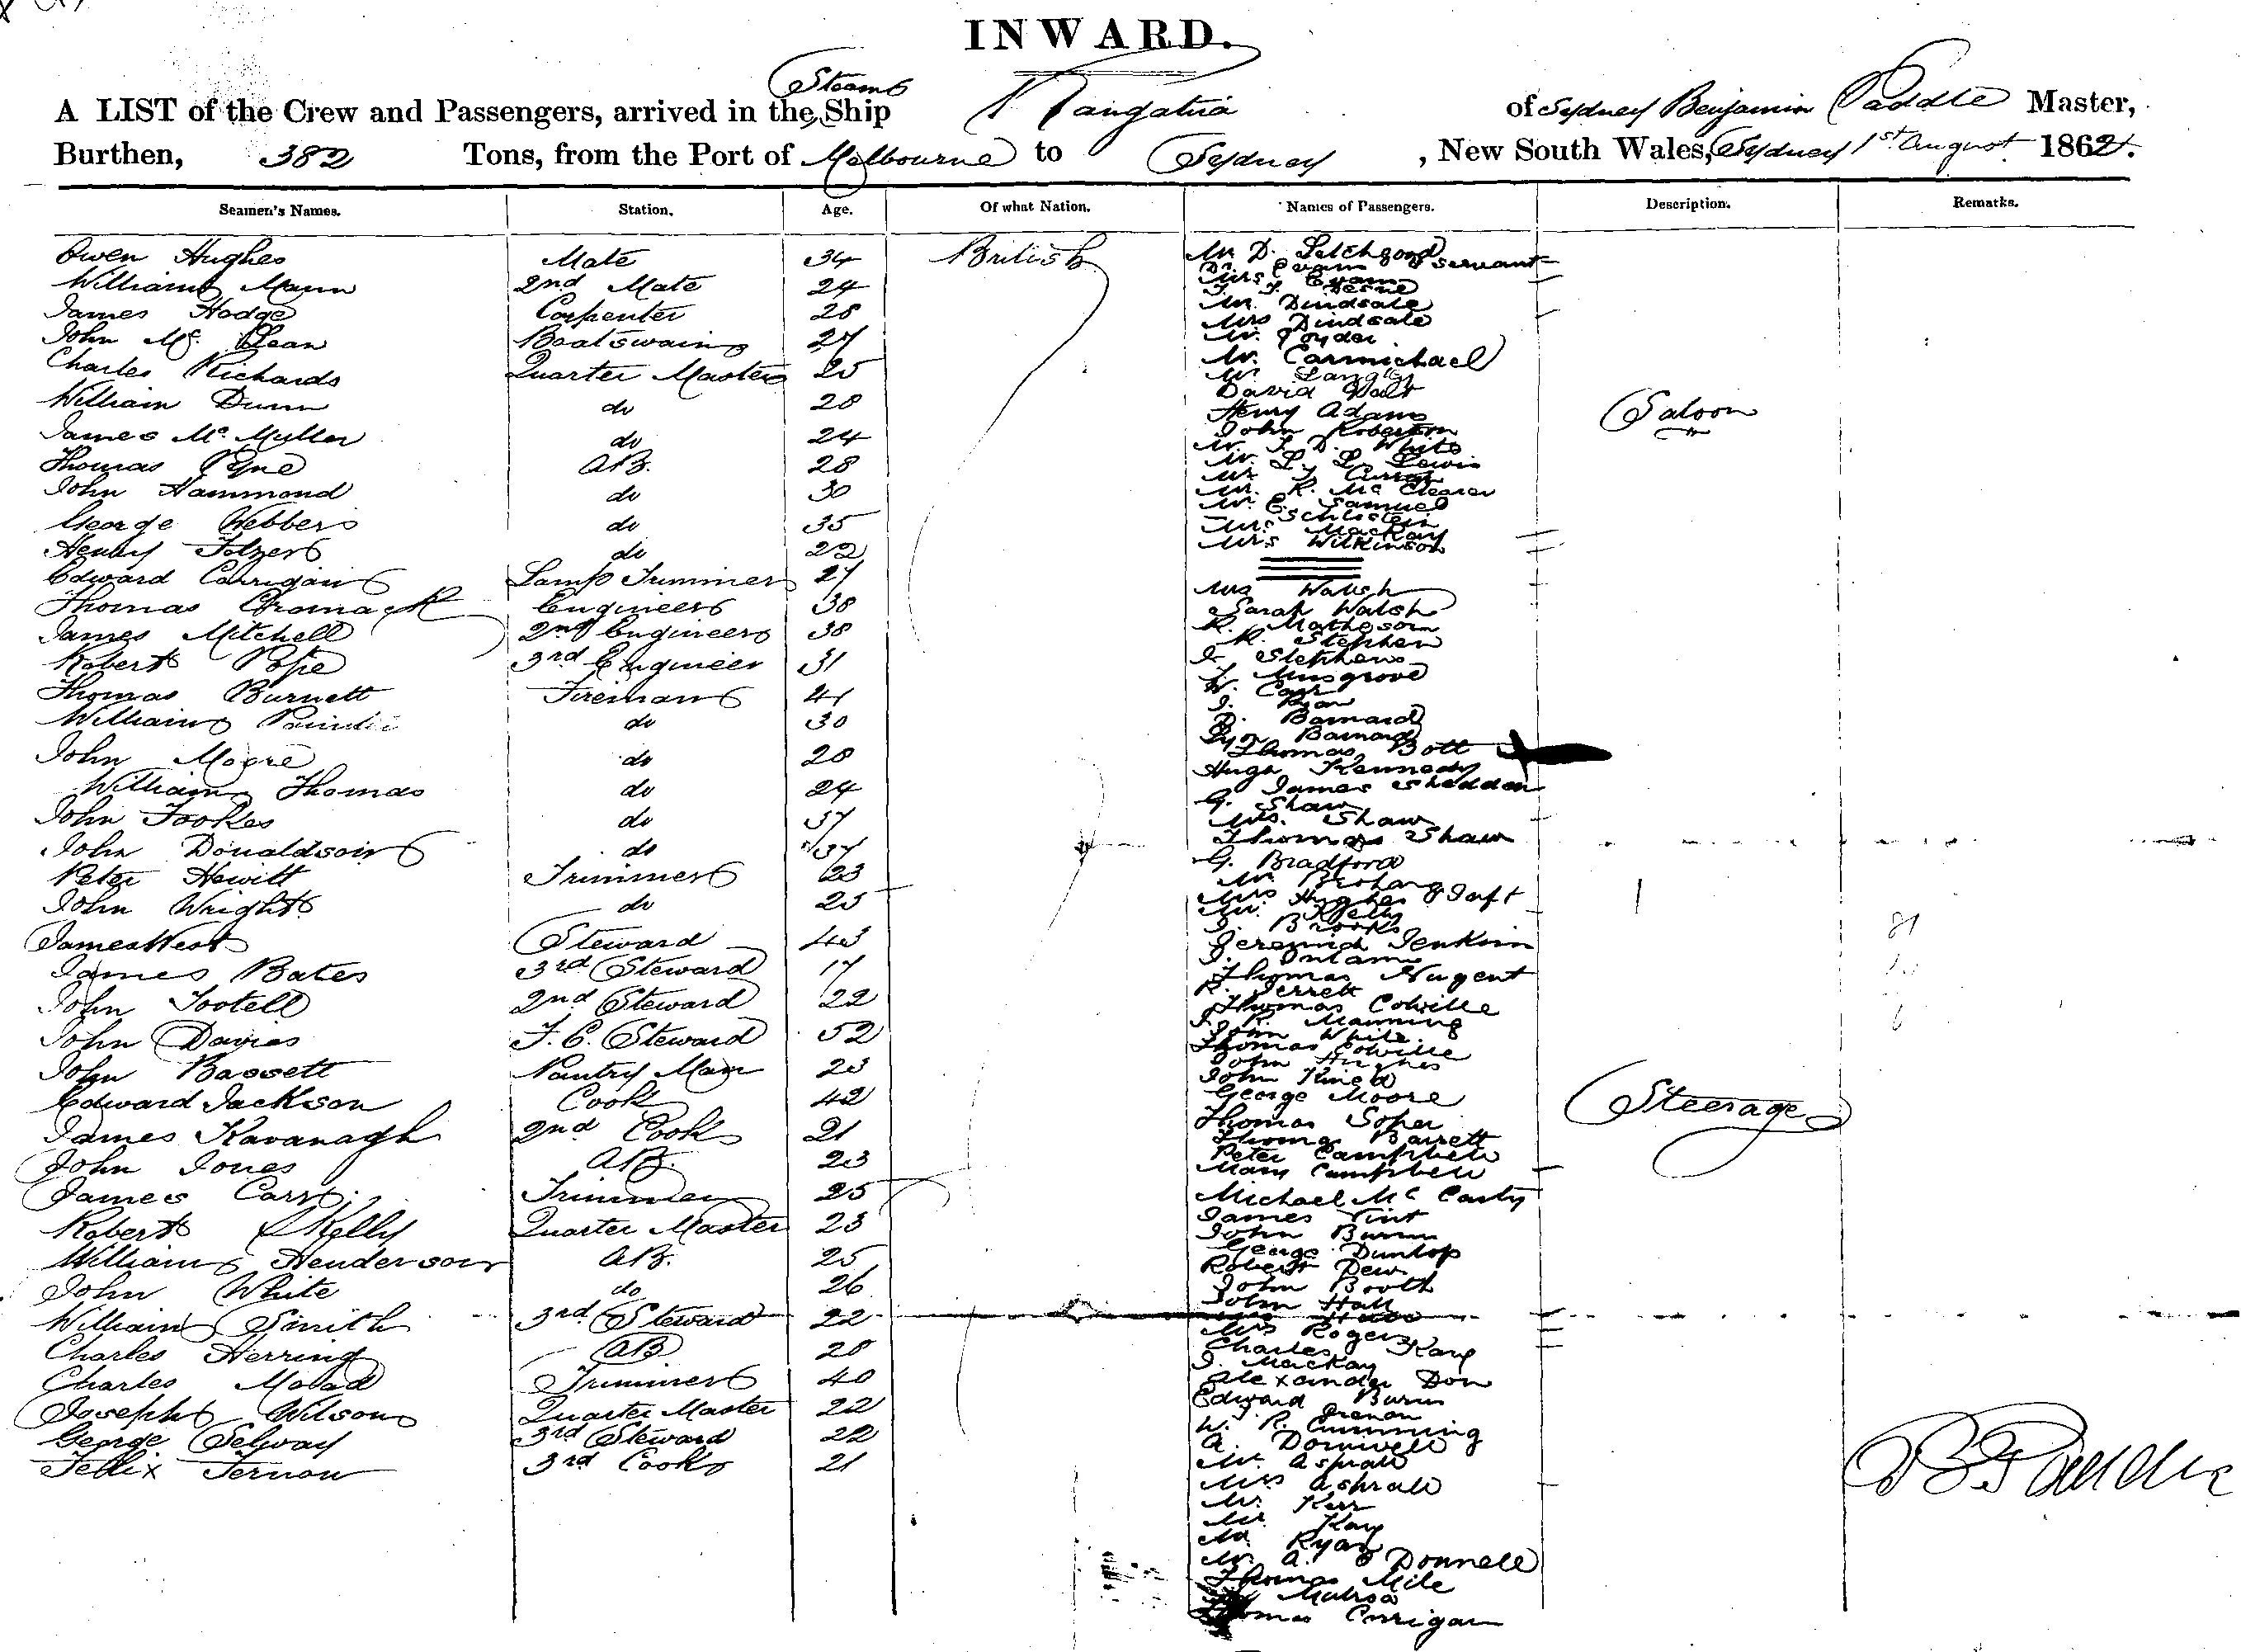 INWARD.
A LIST of the Crew and Passengers, arrived in the Steam Ship Rangatira of Sydney Benjamin Paddle Master,
Burthen, 382 Tons, from the Port of Melbourne to Sydney, New South Wales, Sydney 1st August 1862.
Seamen's Names. Station. Age. Of what Nation. Names of Passengers. Description. Remarks.
Owen Hughes Mate 34 British
William Mann 2nd Mate 24
James Hodge Carpenter 28
John Mc Lean Boatswain 27
Charles Richards Quarter Master 25
William Dunn do 28
James Mc Mullen do 24
Thomas Pyne AB. 28
John Hammond do 30
George Webber do 35
Henry do 22
Edward Carrigan Lamp Trimmer 27
Thomas Cromack Engineer 38
James Mitchell 2nd Engineer 38
Robert Pope 3rd Engineer 31
Thomas Burnett Fireman 41
William do 30
John Moore do 28
William Thomas do 24
John Fookes do 37
John Donaldson do 37
Peter Hewitt Trimmer 23
John Wright do 25
James West Steward 43
James Bates 3rd Steward 17
John Tootell 2nd Steward 22
John Davies F. C. Steward 52
John Bassett Pantry Man 23
Edward Jackson Cook 42
James Kavanagh 2nd Cook 21
John Jones AB. 23
James Carr Trimmer 25
Robert Kelly Quarter Master 23
William Henderson AB. 25
John White do 26
William Smith 3rd Steward 22
Charles Herring AB 28
Charles Trimmer 40
Joseph Wilson Quarter Master 22
George Selway 3rd Steward 22
Fellix Fernon 3rd Cook 21
Mr D. servant
Mrs Evans
Mr. Dindsale
Mrs Dindsale
Mr. Poyder
Mr. Carmichael
Mr Lang
David
Henry Adams
John Robertson
Mr. T. D. White
Mr. L. L. Lewis
Mr. Curran
Mr. R. Mc
Mr. E. Samuel
Mrs MacKay
Mrs Wilkinson
Saloon
Mrs Walsh
Sarah Walsh
R. Matheson
R. Stephen
J. Stephens
T. Musgrove
W. Carr
J. Ryan
D. Barnard
Barnard
Thomas Bott
Hugh Kennedy
James Shedden
G. Shaw
Mrs. Shaw
Thomas Shaw
G. Bradford
Mr.
Mrs Hughes & Inft
Mr. Kelly
J. Brooks
Jeremiah Jenkins
J.
Thomas Nugent
R. Perrett
Thomas Colville
J. R. Manning
John White
Thomas Colville
John Hughes
John
George Moore
Thomas Soper
Thomas Barrett
Peter Campbell
Mary Campbell
Steerage
Michael Mc Carty
James Vint
John Burns
George Dunlop
Robert Dew
John Booth
John Hall
Mrs Rogers
Charles Kay
J. MacKay
Alexander Don
Edward Burns
W. R. Cumming
A.
Mr.
Mrs
Mr. Kerr
Mr. Kay
Mr. Ryan
Mr. A. O Donnell
Thomas Mile
Thomas Corrigan
81
B Paddle